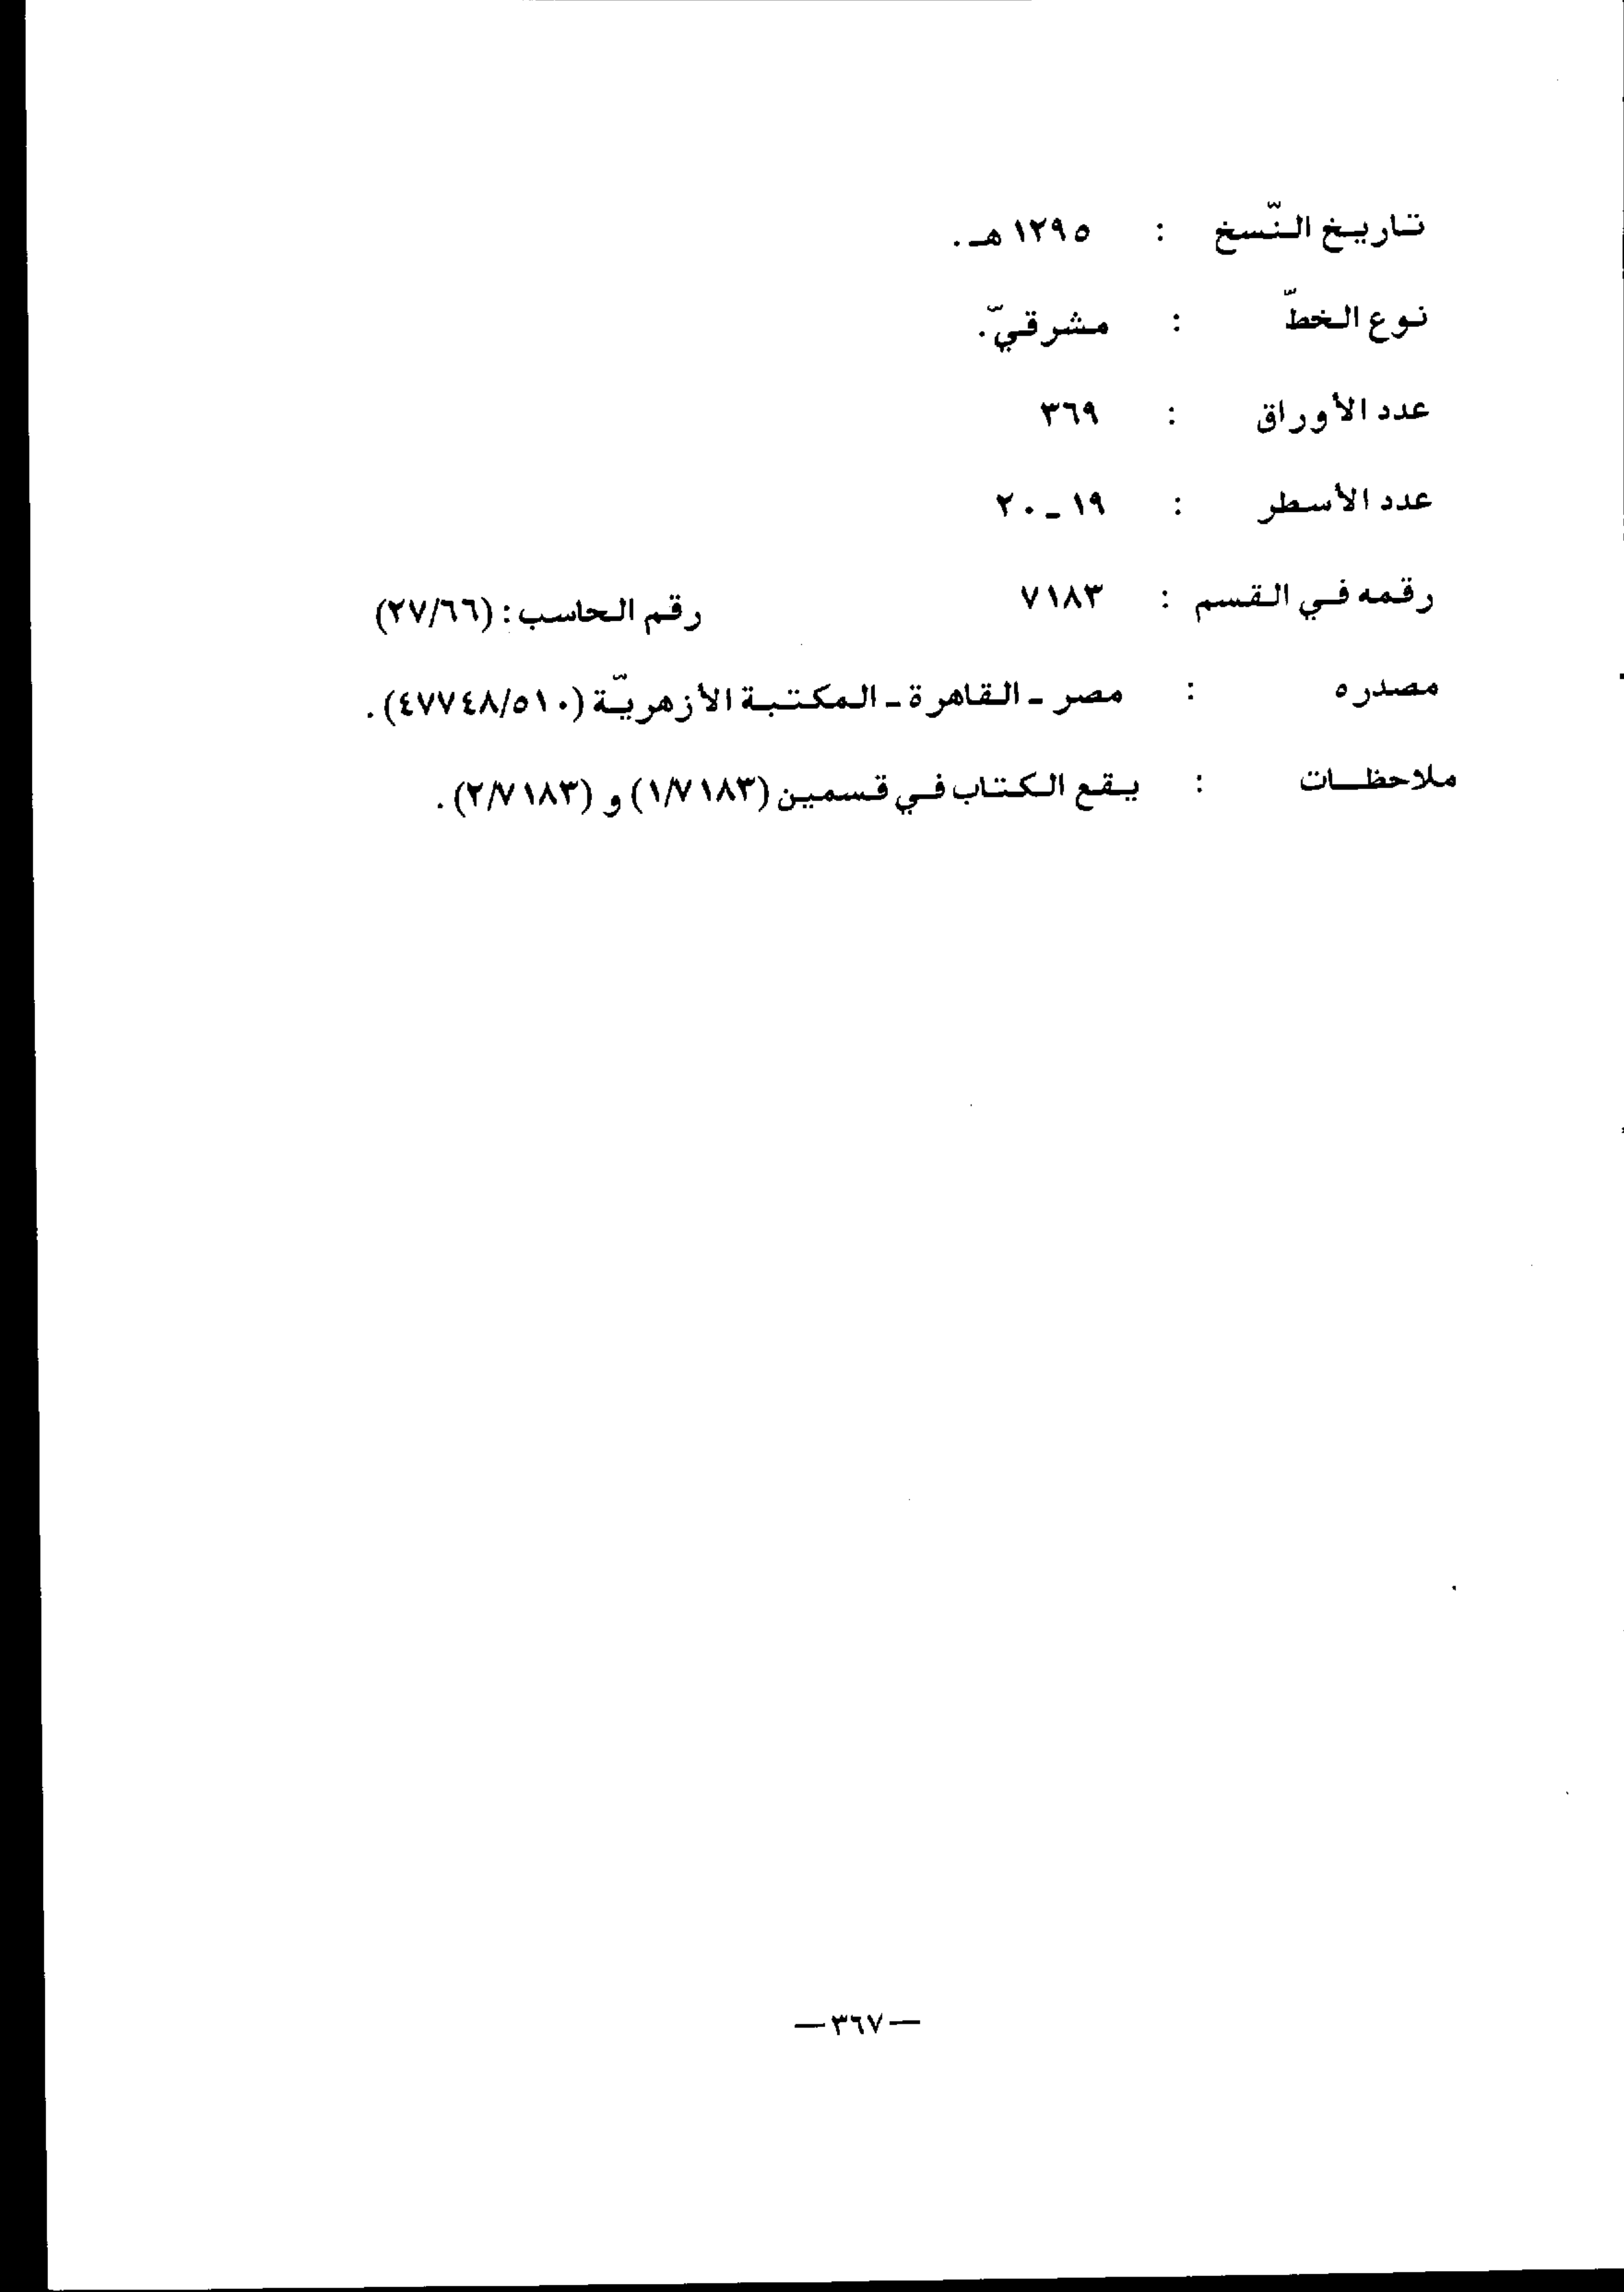 تاريخ النّسخ : ١٢٩٥هـ .
نوع الخطّ : مشرقيّ.
عدد الأوراق : ٣٦٩
عدد الأسطر : ١٩ ـ ٢٠
رقمه في القسم : ٧١٨٣ رقم الحاسب : (٢٧/٦٦)
مصدره : مصر ـ القاهرة ـ المكتبة الأزهريّة (٤٧٧٤٨/٥١٠) .
ملاحظات : يقع الكتاب في قسمين (١/٧١٨٣) و (٢/٧١٨٣) .
— ٣٦٧ —